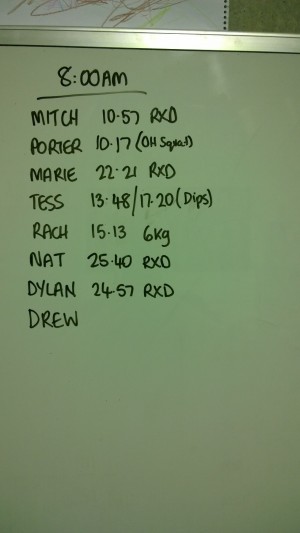 8:00AM
MITCH 10.57 RXD
PORTER 10.17 (OH Squat)
MARIE 22.21 RXD
TESS 13.48/17.20 (Dips)
RACH 15.13 6kg
NAT 25.40 RXD
DYLAN 24.57 RXD
DREW